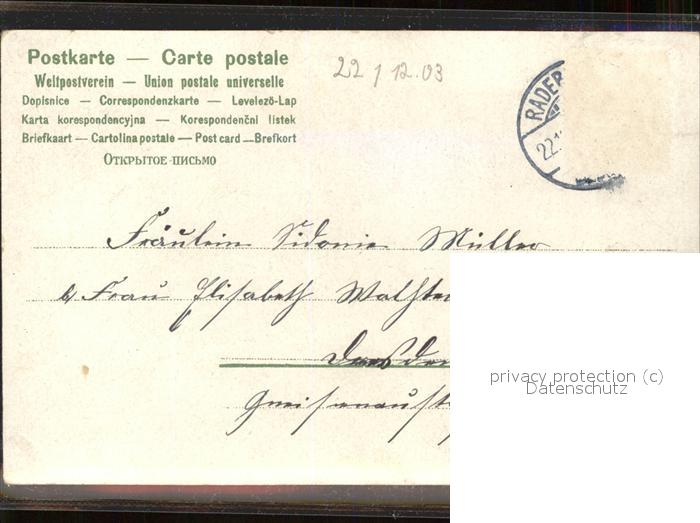 Postkarte — Carte postale
Weltpostverein — Union postale universelle
Dopisnice — Correspondenzkarte — Levelező-Lap
Karta korespondencyjna — Korespondenční lístek
Briefkaart — Cartolina postale — Post card — Brefkort
Открытое письмо
22/12.03
RADEB
22.1
Fräulein Sidonie Müller
b/ Frau Elisabeth
Dresden
privacy protection (c)
Datenschutz